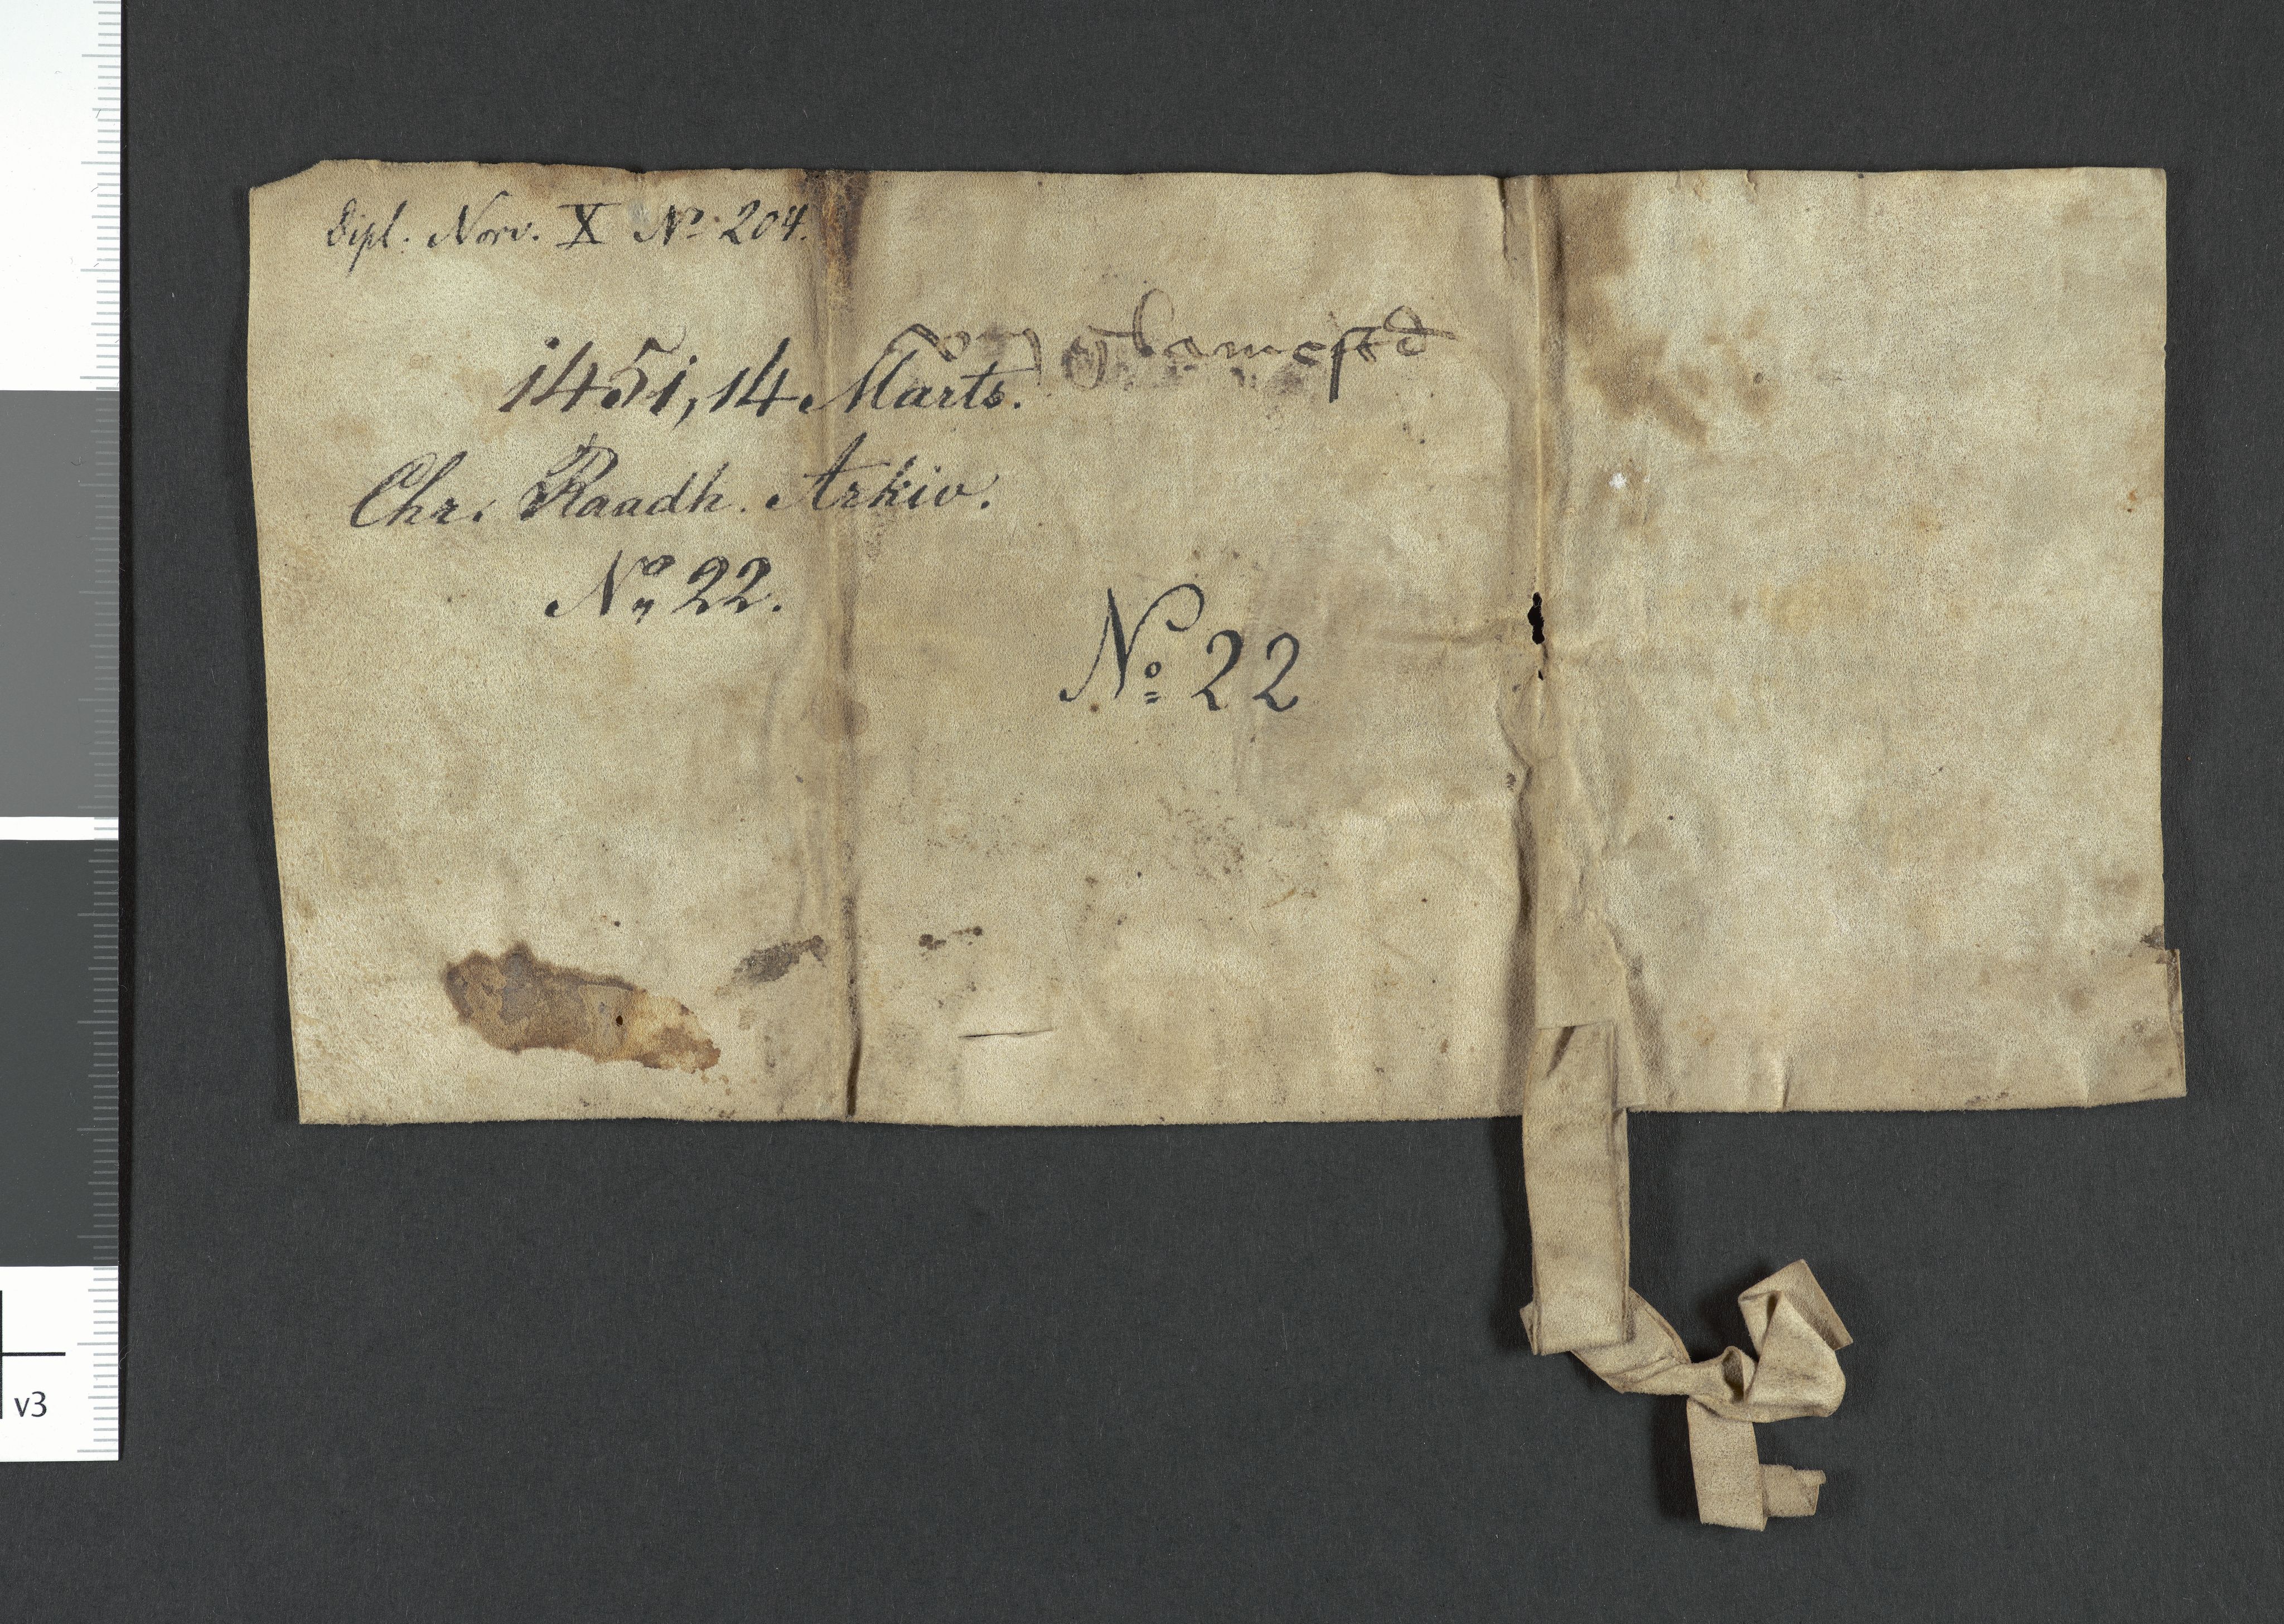 Dipl. Norv. X Nº 204.
1451, 14 Marts.
Chr. Raadh. Arkiv.
Nº 22.
Nº 22
v3